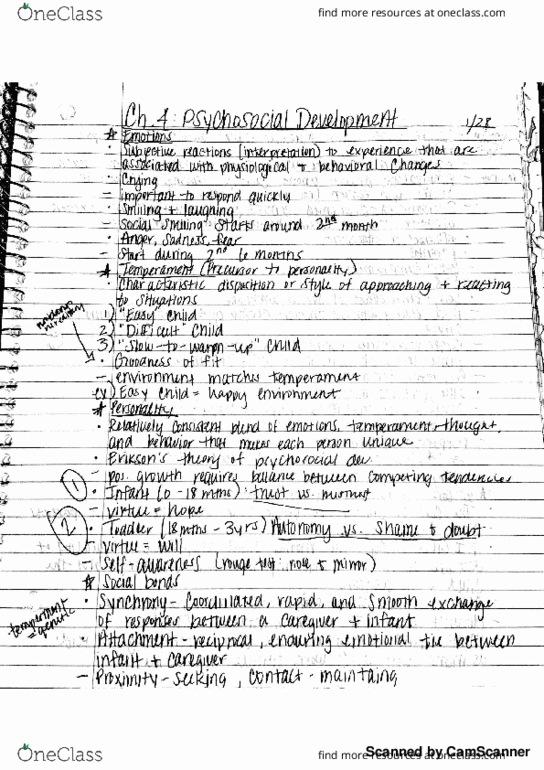 OneClass find more resources at oneclass.com
Ch. 4: Psychosocial Development 1/28
* Emotions
• Subjective reactions (interpretation) to experience that are
associated with physiological + behavioral changes
• Crying
- important to respond quickly
• Smiling + laughing
- Social smiling starts around 2nd month
• Anger, Sadness, fear
- Start during 2nd 6 months
* Temperament (Precursor to personality)
• Characteristic disposition or style of approaching + reacting
to situations
1) "Easy" child
2) "Difficult" child
3) "Slow-to-warm-up" child
• Goodness of fit
- environment matches temperament
ex) Easy child = happy environment
* Personality
• Relatively consistent blend of emotions, temperament, thought,
and behavior that makes each person unique
• Erikson's theory of psychosocial dev.
- pos. growth requires balance between competing tendencies
① • Infant (0 - 18 mths) trust vs. mistrust
- virtue = hope
② • Toddler (18 mths - 3 yrs) Autonomy vs. Shame + doubt
- virtue = will
- Self-awareness (rouge test, nose + mirror)
* Social bonds
• Synchrony - Coordinated, rapid, and smooth exchange
of responses between a caregiver + infant
temperament = genetic
• Attachment - reciprocal, enduring emotional tie between
infant + caregiver
- Proximity - seeking, contact - maintaing
Scanned by CamScanner
OneClass find more resources at oneclass.com